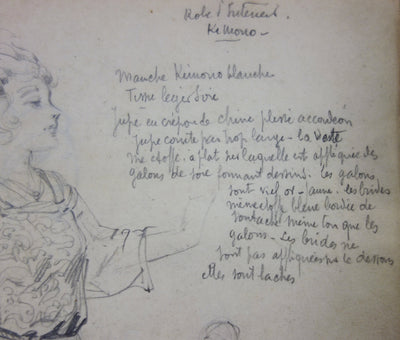 Robe d'Intérieur.
Kimono -
Manche Kimono blanche
Tissu leger Soie
Jupe en crepon de chine plissé accordeon
Jupe courte pas trop large - la veste
me etoffe a plat sur laquelle est appliquée des
galons de soie formant dessins. les galons
sont vieil or - les brides
même étoffe bleue bordée de
soutache même ton que les
galons - Les brides ne
sont pas appliquées sur le dessous
elles sont laches